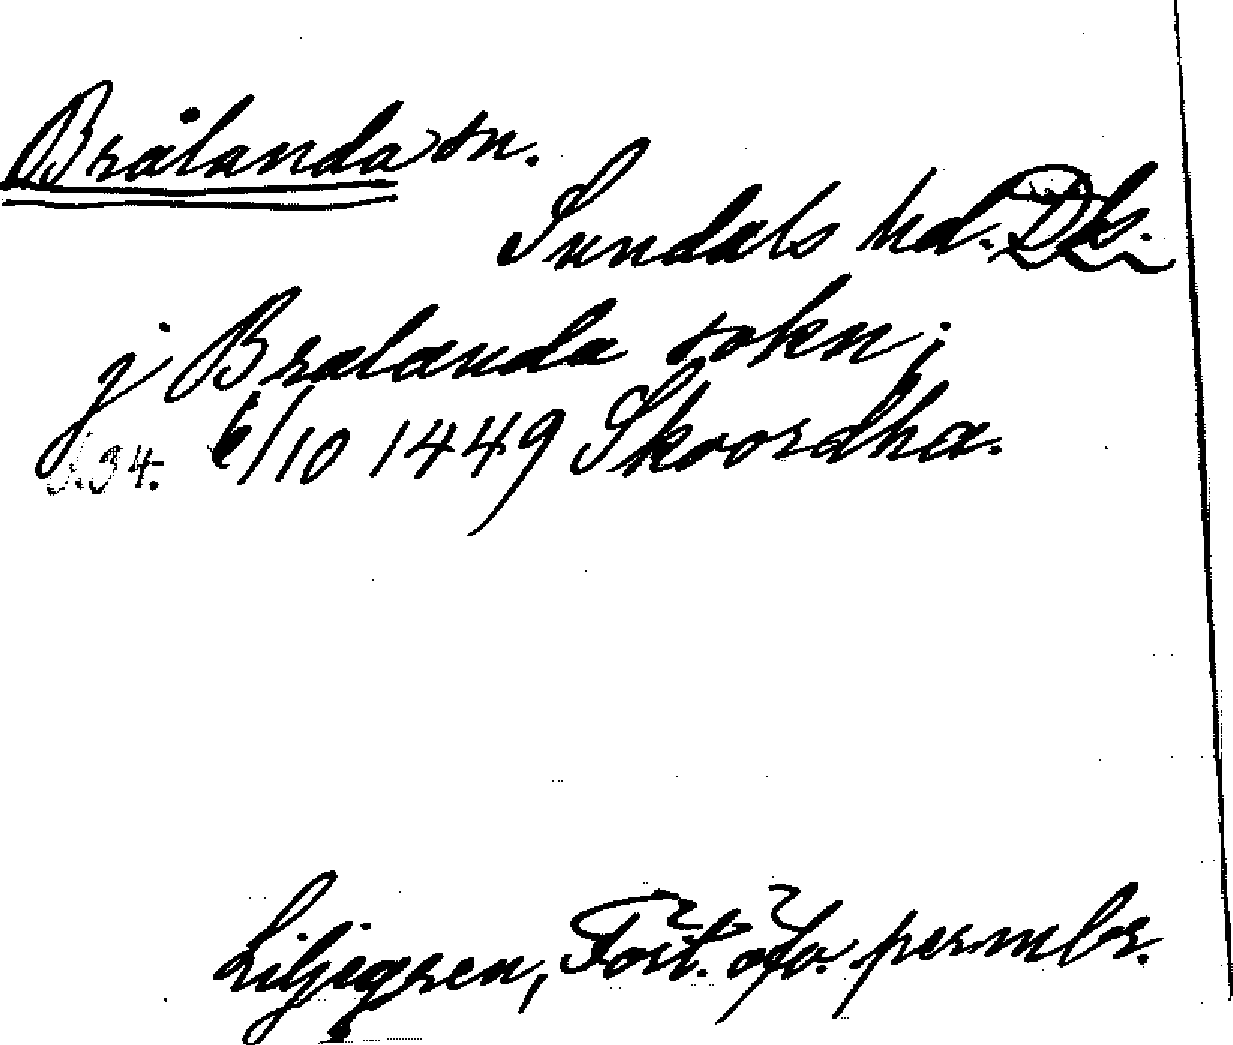 Brålanda sn.
Sundals hd. Dls.
j Bralanda sokn;
S. 34. 6/10 1449 Skoordha.
Liljegren, Fört. öfv. permbr.